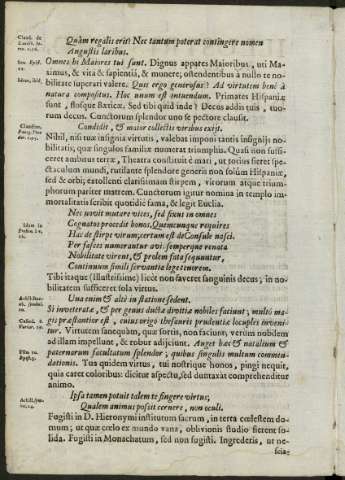 Claud. de
Quàm regalis erit! Nec tantum poterat contingere nomen
Augustis laribus.
Sen. Epist.
Omnes hi Maiores tui sunt. Dignus appares Maioribus, uti Ma-
ximus, & vita & sapientiâ, & munere; ostendentibus à nullo te no-
Idem, ibid.
bilitate superari valere. Quis ergo generosus? Ad virtutem benè à
natura compositus. Hoc unum est intuendum. Primates Hispaniæ
sunt, flosque Bæticæ. Sed tibi quid inde? Decus addis tuis, tuo-
rum decus. Cunctorum splendor uno se pectore clausit.
Claudian.
Condidit, & maior collectis viribus exijt.
Nihil, nisi tuæ insignia virtutis, valebat imponi tantis insignijs no-
bilitatis, quæ singulos familiæ numerat triumphis. Quasi non suffi-
ceret ambitus terræ, Theatra constituit è mari, ut totius fieret spe-
ctaculum mundi, rutilante splendore generis non solùm Hispaniæ,
sed & orbi; extollenti clarissimam stirpem, vicorum atque trium-
phorum pariter matrem. Cunctorum igitur nomina in templo im-
mortalitatis scribit quotidiè fama, & legit Euclia.
Nec novit mutare vices, sed fixus in omnes
Idem in
Cognatos procedit honos. Quemcunque requires
Hac de stirpe virum; certum est de Consule nasci.
Per fasces numerantur avi: semperque renata
Nobilitate virent, & prolem fata sequuntur,
Continuum simili servantia lege tenorem.
Tibi itaque (Illustrissime) licèt non faveret sanguinis decus; in no-
bilitatem sufficeret sola virtus.
Una enim & altò in statione sedent.
Si inveteratæ, & per genus ductæ divitiæ nobiles faciunt; multò ma-
gis præstantior est, cuius origo thesauris prudentiæ locuples inveni-
Variar.
tur. Virtutem sanequàm, quæ sortis, non faciunt, verùm nobilem
ad illam impellunt, & robur adjiciunt. Auget hæc & natalium &
paternarum facultatum splendor; quibus singulis multum commen-
dationis. Tua quidem virtus, tui nostrique honos, pingi nequit,
quia caret coloribus: dicitur aspectu, sed dumtaxàt comprehenditur
animo.
Ipsa tamen potuit talem te fingere virtus;
Qualem animus possit cernere, non oculi.
Fugisti in D. Hieronymi institutum sacrum, in terra cœlestem do-
mum; ut quæ cœlo ex mundo vana, oblivionis studio fierent so-
lida. Fugisti in Monachatum, sed non fugisti. Ingrederis, ut ne-
scia-